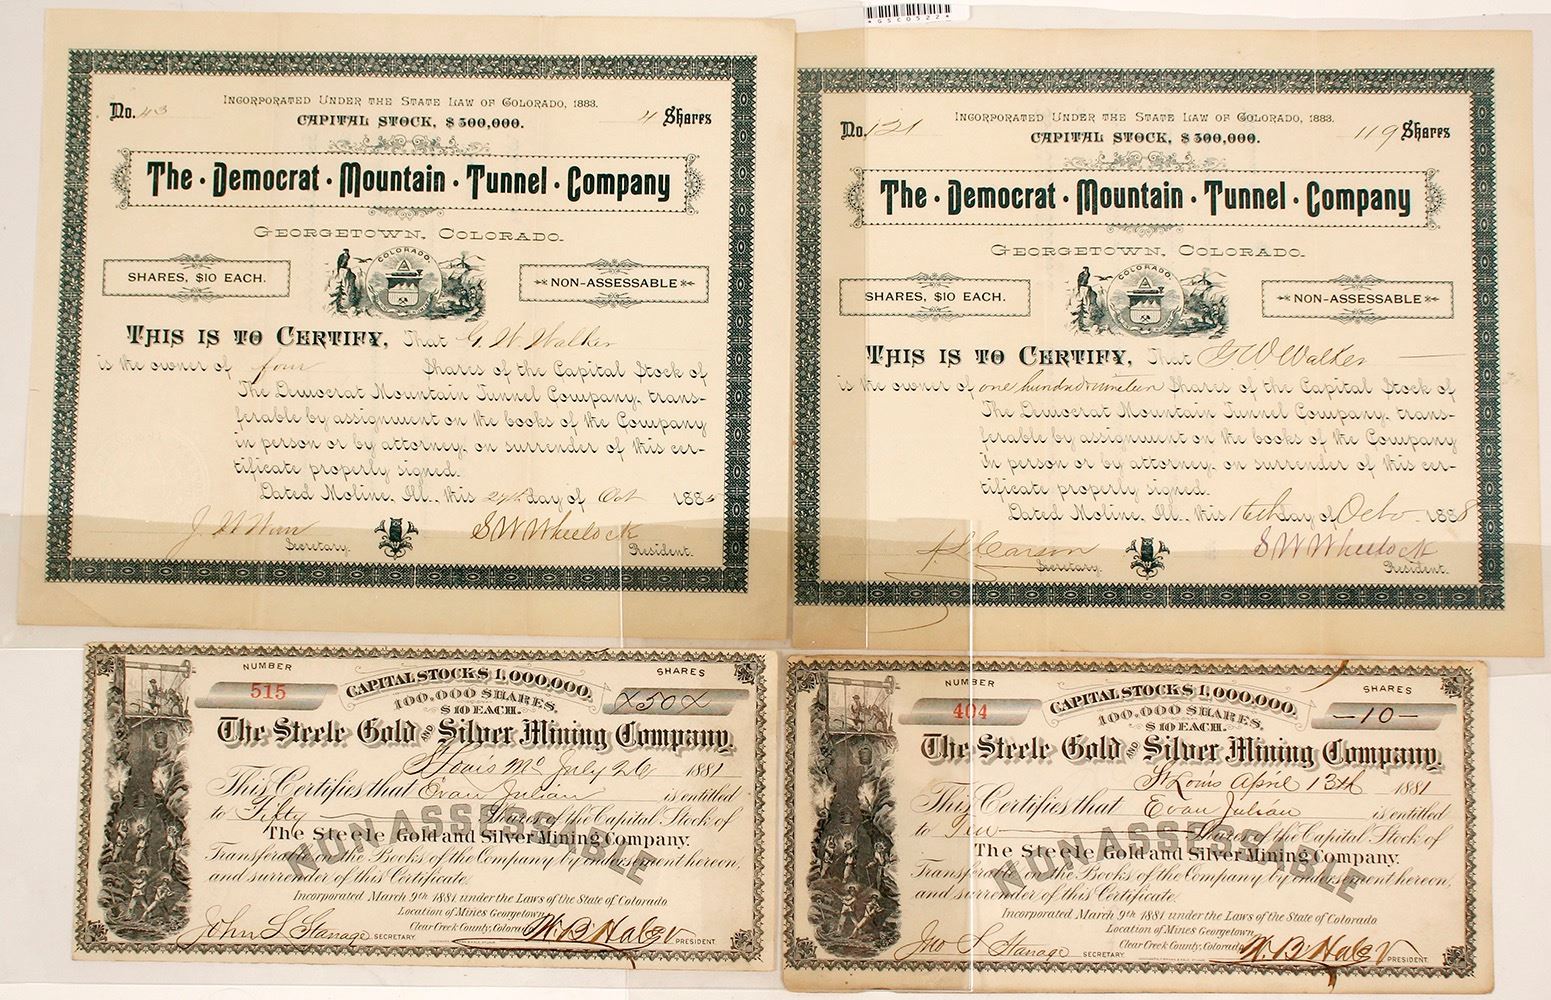 *GSE0522*
No. 43
INCORPORATED UNDER THE STATE LAW OF COLORADO, 1883.
4 Shares
CAPITAL STOCK, $300,000.
The · Democrat · Mountain · Tunnel · Company
GEORGETOWN, COLORADO.
SHARES, $10 EACH.
COLORADO
NON-ASSESSABLE
THIS IS TO CERTIFY, That G. W. Walker
is the owner of four Shares of the Capital Stock of
The Democrat Mountain Tunnel Company, trans-
ferable by assignment on the books of the Company
in person or by attorney, on surrender of this cer-
tificate properly signed.
Dated Moline, Ill., this 24th day of Oct 1885
S W Wheelock
Secretary. President.
No. 121
INCORPORATED UNDER THE STATE LAW OF COLORADO, 1883.
119 Shares
CAPITAL STOCK, $300,000.
The · Democrat · Mountain · Tunnel · Company
GEORGETOWN, COLORADO.
SHARES, $10 EACH.
COLORADO
NON-ASSESSABLE
THIS IS TO CERTIFY, That G. W Walker
is the owner of one hundred nineteen Shares of the Capital Stock of
The Democrat Mountain Tunnel Company, trans-
ferable by assignment on the books of the Company
in person or by attorney, on surrender of this cer-
tificate properly signed.
Dated Moline, Ill., this 16th day of Octo 1888
Carson S W Wheelock
Secretary. President.
NUMBER
515
CAPITAL STOCK $1,000,000.
SHARES
50
100,000 SHARES.
$10 EACH.
The Steele Gold AND Silver Mining Company.
St Louis Mo July 26 1881
This Certifies that Evan Julian is entitled
to Fifty Shares of the Capital Stock of
The Steele Gold and Silver Mining Company.
NON ASSESSABLE
Transferable on the Books of the Company by endorsement hereon,
and surrender of this Certificate.
Incorporated March 9th 1881 under the Laws of the State of Colorado
Location of Mines Georgetown
Clear Creek County, Colorado
John S Stanage SECRETARY W. B Haley PRESIDENT
NUMBER
404
CAPITAL STOCK $1,000,000.
SHARES
-10-
100,000 SHARES.
$10 EACH.
The Steele Gold AND Silver Mining Company.
St Louis April 13th 1881
This Certifies that Evan Julian is entitled
to Ten Shares of the Capital Stock of
The Steele Gold and Silver Mining Company.
NON ASSESSABLE
Transferable on the Books of the Company by endorsement hereon,
and surrender of this Certificate.
Incorporated March 9th 1881 under the Laws of the State of Colorado
Location of Mines Georgetown
Clear Creek County, Colorado
Jno S Stanage SECRETARY W. B Haley PRESIDENT